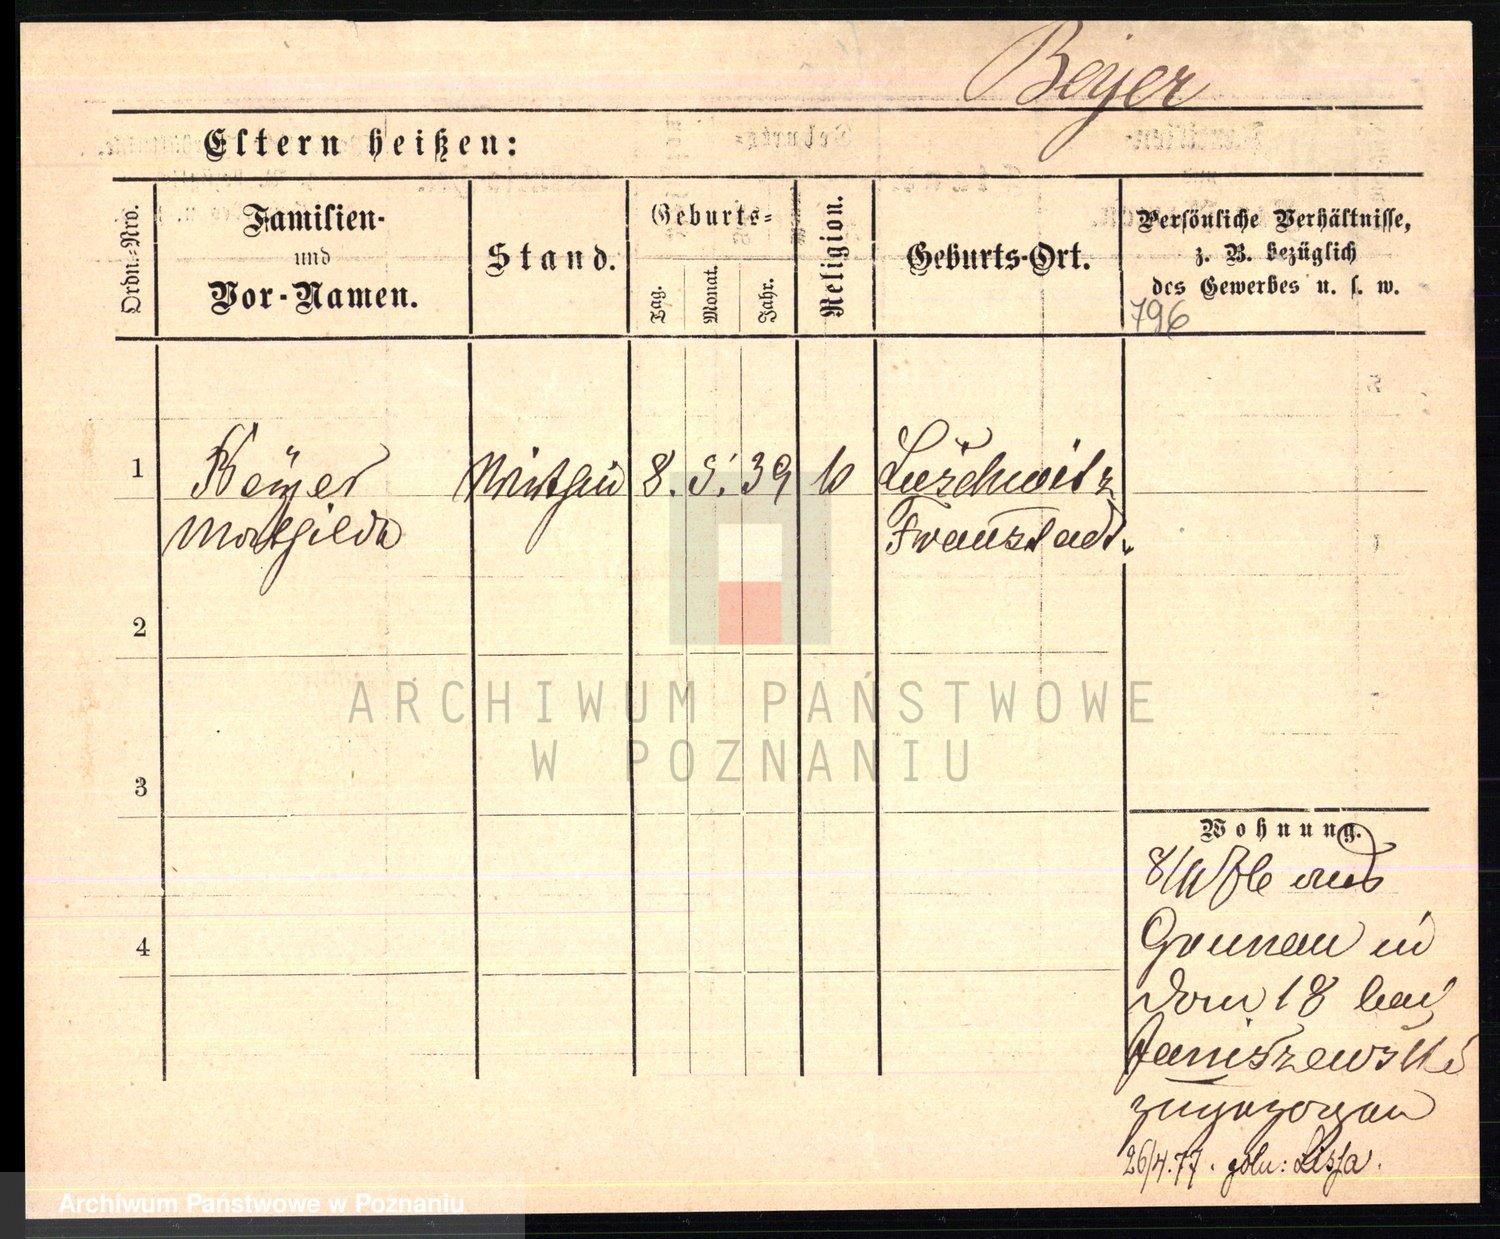 Beyer
Eltern heißen:
Ordn.-Nro.
Familien-
und
Vor-Namen.
Stand.
Geburts-
Tag.
Monat.
Jahr.
Religion.
Geburts-Ort.
Persönliche Verhältnisse,
z. B. bezüglich
des Gewerbes u. s. w.
796
1
Beyer
Mathilde
Wirthin
8. 5. 39
Luschwitz
Fraustadt
2
3
4
Wohnung.
8/11 76 aus
Grunau in
Dom 18 bei
Janiszewski
zugezogen
26/4.77. Lissa.
ARCHIWUM PAŃSTWOWE
W POZNANIU
Archiwum Państwowe w Poznaniu